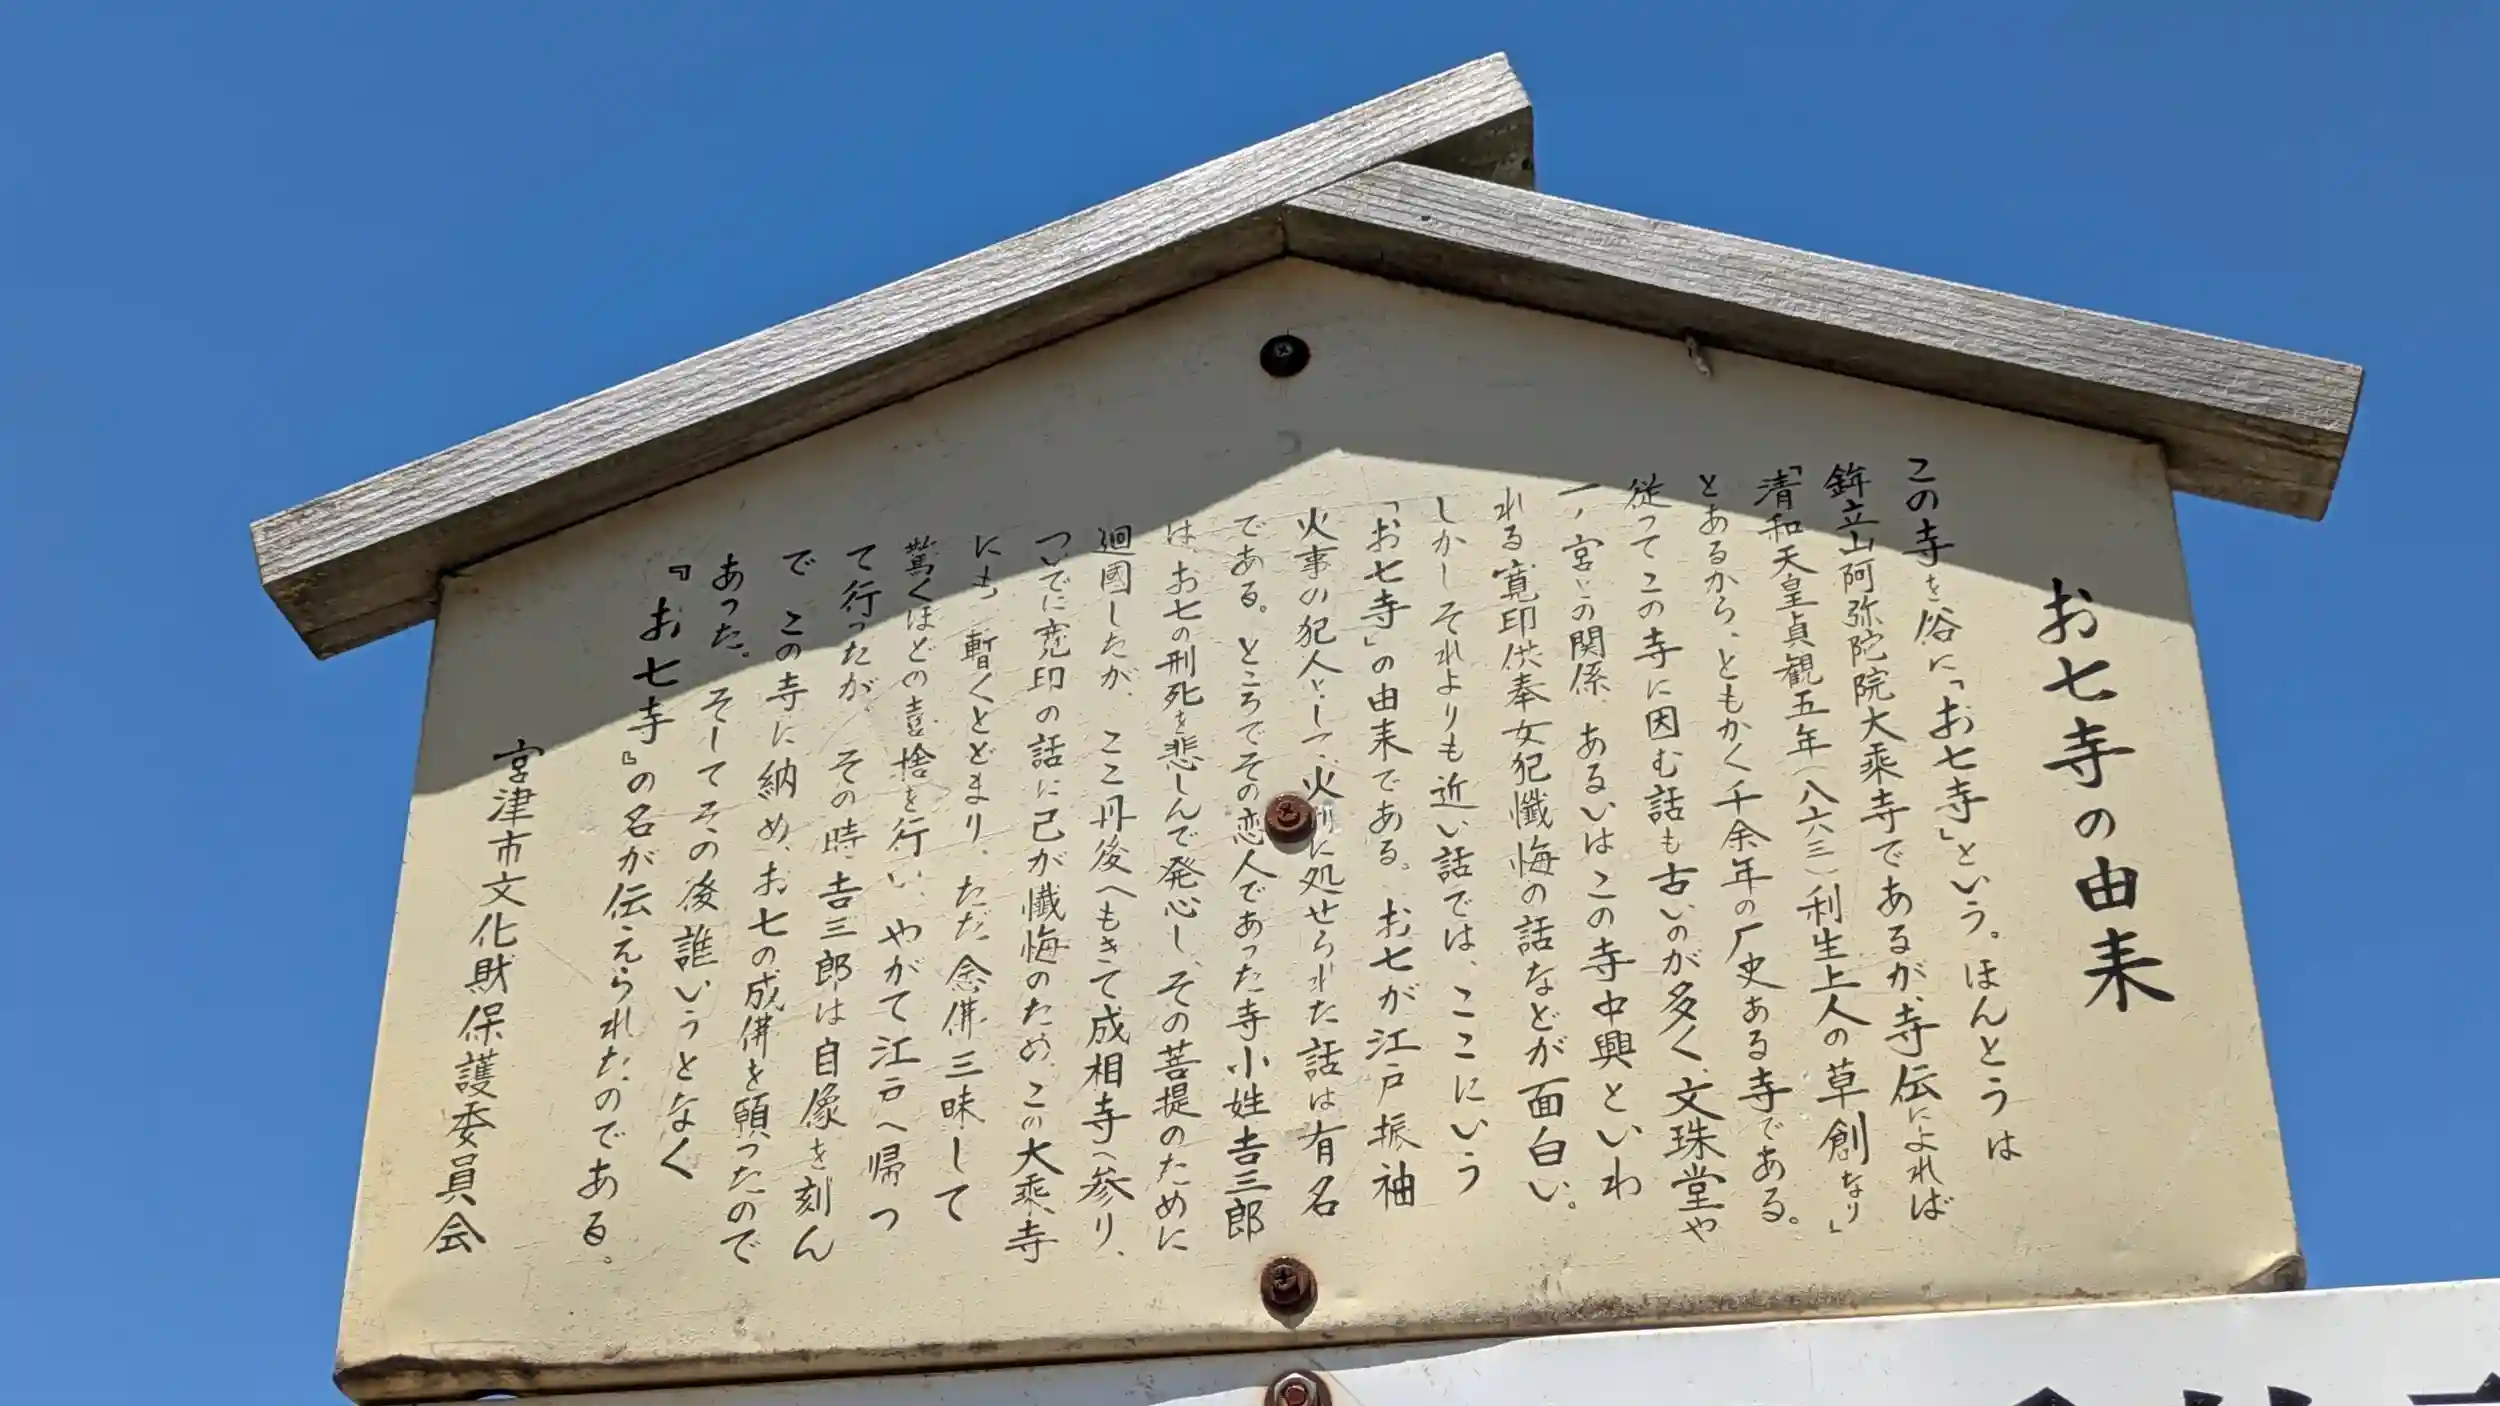 お七寺の由来
この寺を俗に「お七寺」という。ほんとうは
鉾立山阿弥陀院大乘寺であるが、寺伝によれば
「清和天皇貞観五年（八六三）利生上人の草創なり」
とあるから、ともかく千余年の厂史ある寺である。
従ってこの寺に因む話も古いのが多く、文珠堂や
一ノ宮との関係、あるいはこの寺中興といわ
れる寛印供奉女犯懺悔の話などが面白い。
しかしそれよりも近い話では、ここにいう
「お七寺」の由来である。お七が江戸振袖
火事の犯人として、火刑に処せられた話は有名
である。ところでその恋人であった寺小姓吉三郎
は、お七の刑死を悲しんで発心し、その菩提のために
廻國したが、ここ丹後へもきて成相寺へ参り、
ついでに寛印の話に己が懺悔のため、この大乘寺
にも、暫くとどまり、ただ念佛三昧して
驚くほどの喜捨を行い、やがて江戸へ帰っ
て行ったが、その時、吉三郎は自像を刻ん
で この寺に納め、お七の成佛を願ったので
あった。そしてその後誰いうとなく
『お七寺』の名が伝えられたのである。
宮津市文化財保護委員会